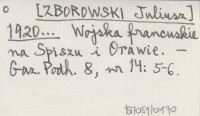 [ZBOROWSKI Juliusz]
1920... Wojska francuskie
na Spiszu i Orawie. -
Gaz. Podh. 8, nr 14: 5-6.